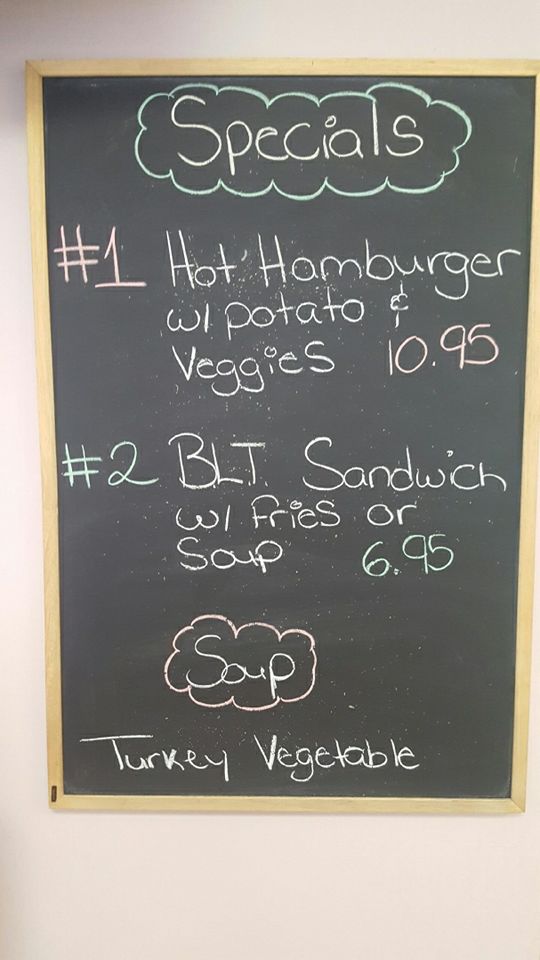 Specials
#1 Hot Hamburger
w/ potato &
Veggies 10.95
#2 BLT. Sandwich
w/ fries or
Soup 6.95
Soup
Turkey Vegetable